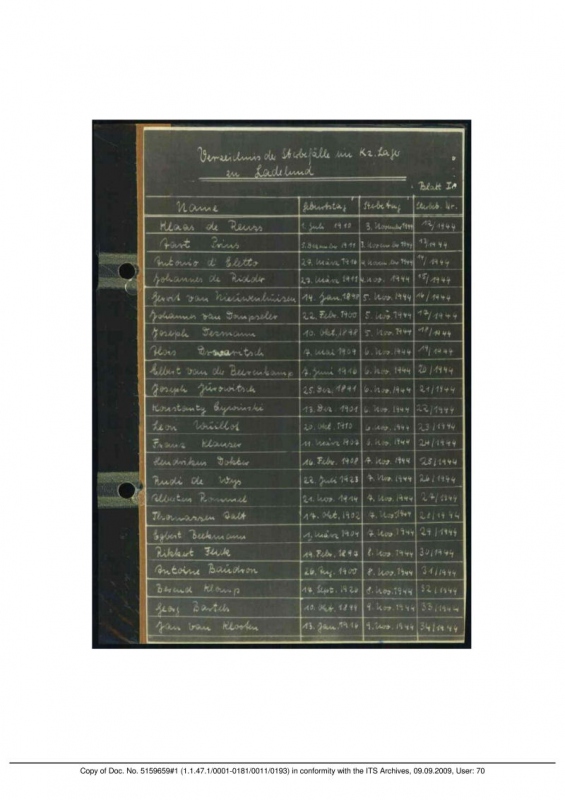 Verzeichnis der Sterbefälle im Kz. Lager
zu Ladelund
Blatt II
Name Geburtstag Sterbetag Urkdb. Nr.
Klaas de 1. Juli 1910 3. November 1944 12/1944
Aart Prins 3. November 1944 13/1944
Antonio d' Eletto 27. März 1914/1944
Johannes de Ridder 27. März 1911 4. Nov. 1944 15/1944
Gerrit van 14. Jan. 5. Nov. 1944 16/1944
Johannes van 22. Febr. 1900 5. Nov. 1944 17/1944
Joseph Germann 10. Okt. 1898 5. Nov. 1944 18/1944
Alois 7. Mai 6. Nov. 1944 19/1944
Elbert van de Beerenkamp 7. Juni 1916 6. Nov. 1944 20/1944
Joseph Jurowitsch 25. 1891 6. Nov. 1944 21/1944
Konstanty 13. Dez. 1901 6. Nov. 1944 22/1944
Leon 20. Okt. 1910 6. Nov. 1944 23/1944
Franz Klauser 11. März 1902 6. Nov. 1944 24/1944
Hendrikus Dokter 16. Febr. 1908 7. Nov. 1944 25/1944
Rudi de Wys 22. Juni 1923 7. Nov. 1944 26/1944
Albertus Rommel 21. Nov. 1914 7. Nov. 1944 27/1944
Thomassen Aalt 17. Okt. 1902 7. Nov. 1944 28/1944
Egbert Beekmann März 1904 7. Nov. 1944 29/1944
Rikkert 19. Febr. 8. Nov. 1944 30/1944
Antoine Baudron 26. Aug. 1900 8. Nov. 1944 31/1944
Berend Klomp 17. Sept. 1920 8. Nov. 1944 32/1944
Georg Bartels 10. Okt. 1899 9. Nov. 1944 33/1944
Jan van 13. Jan. 1916 9. Nov. 1944 34/1944
Copy of Doc. No. 5159659#1 (1.1.47.1/0001-0181/0011/0193) in conformity with the ITS Archives, 09.09.2009, User: 70